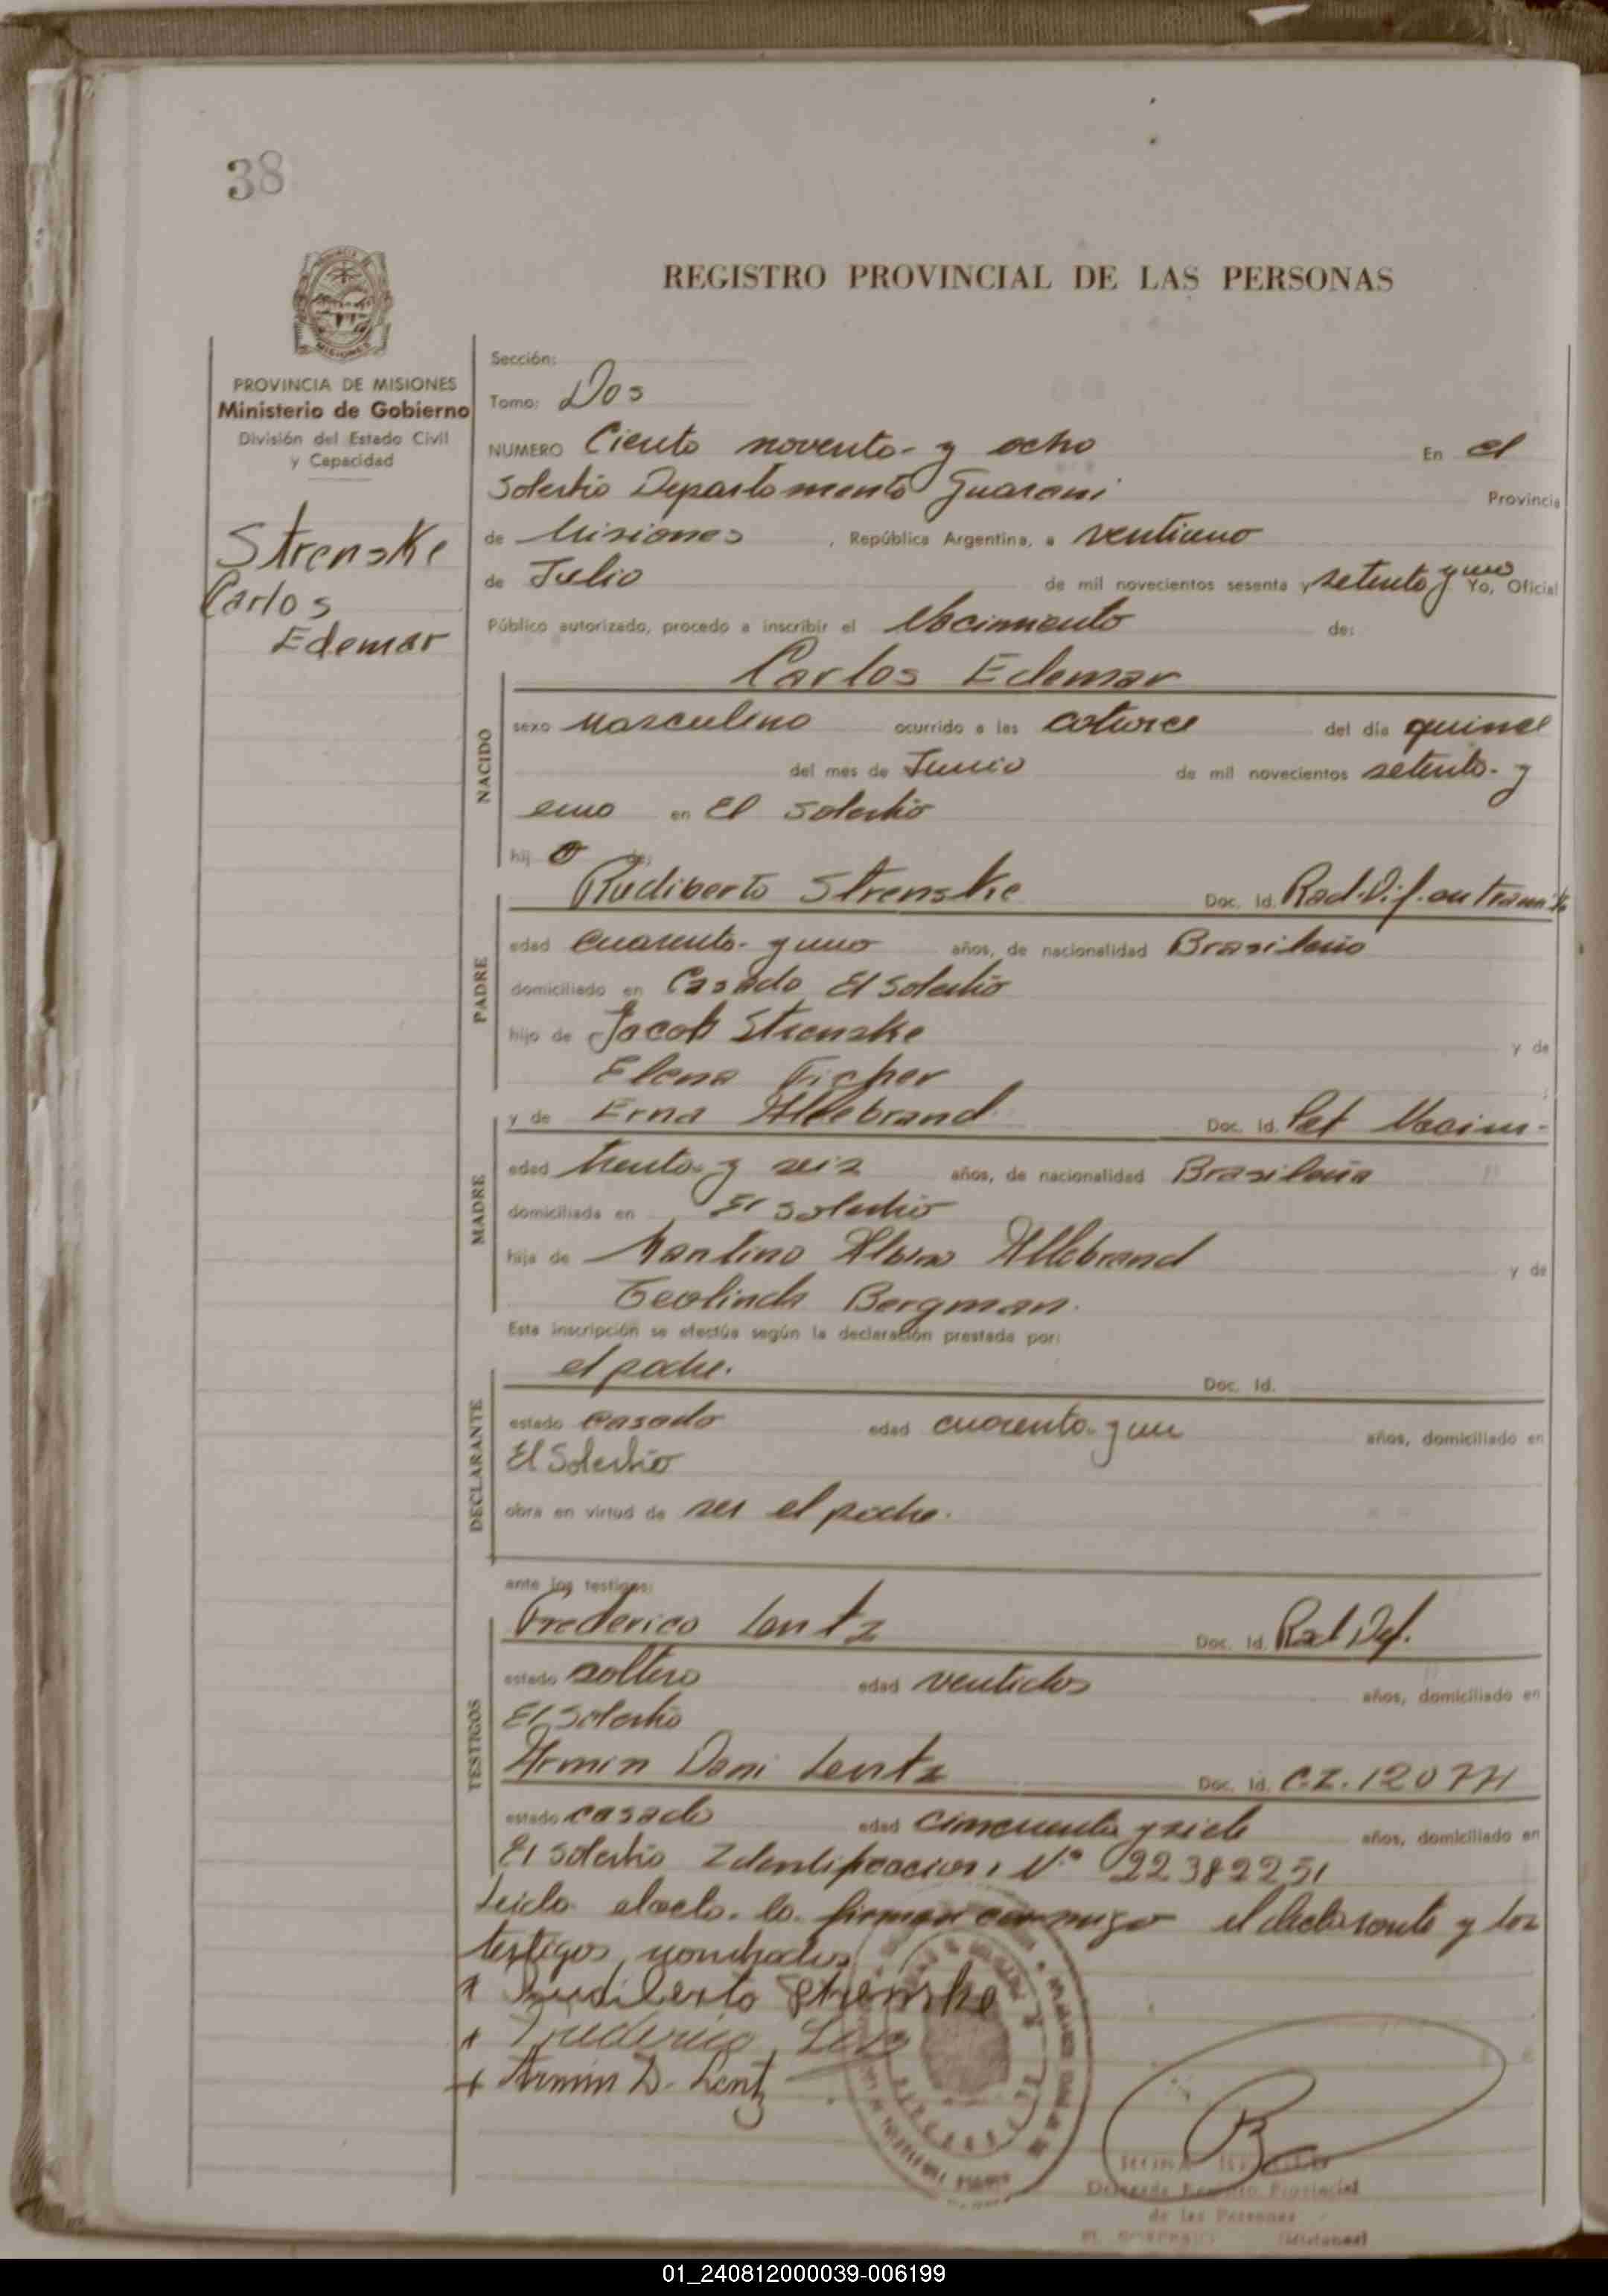 38
REGISTRO PROVINCIAL DE LAS PERSONAS
MISIONES
PROVINCIA DE MISIONES
Ministerio de Gobierno
División del Estado Civil
y Capacidad
Strenske
Carlos
Edemar
Sección:
Tomo: Dos
NUMERO Ciento noventa y ocho En el
Soberbio Departamento Guarani Provincia
de Misiones, República Argentina, a ventiuno
de Julio de mil novecientos sesenta y setenta y uno Yo, Oficial
Público autorizado, procedo a inscribir el Nacimiento de:
Carlos Edemar
NACIDO
sexo masculino ocurrido a las catorce del día quince
del mes de Junio de mil novecientos setenta y
uno en El Soberbio
hij o de:
Rudiberto Strenske Doc. Id. Rad. Dif. en tramite
PADRE
edad cuarenta y uno años, de nacionalidad Brasileño
domiciliado en Casado El Soberbio
hijo de Jacob Strenske y de
Elena Ficher
y de Erna Allebrand Doc. Id. Nacim-
MADRE
edad trenta y seis años, de nacionalidad Brasileña
domiciliada en El Soberbio
hija de Albino Allebrand y de
Bergman.
Esta inscripción se efectúa según la declaración prestada por:
el padre. Doc. Id.
DECLARANTE
estado casado edad cuarenta y un años, domiciliado en
El Soberbio
obra en virtud de ser el padre.
ante los testigos:
Frederico Lentz Doc. Id. Rad Def.
TESTIGOS
estado soltero edad ventidos años, domiciliado en
El Soberbio
Armin Dani Lentz Doc. Id. C.I. 12077
estado casado edad cincuenta y siete años, domiciliado en
El Soberbio Identificacion N.° 22382251
Leido el acto lo firman conmigo el declarante y los
testigos nombrados
Rudiberto Strenske
Frederico
Armin D. Lentz
Delegada Registro Provincial
de las Personas
(Misiones)
01_240812000039-006199